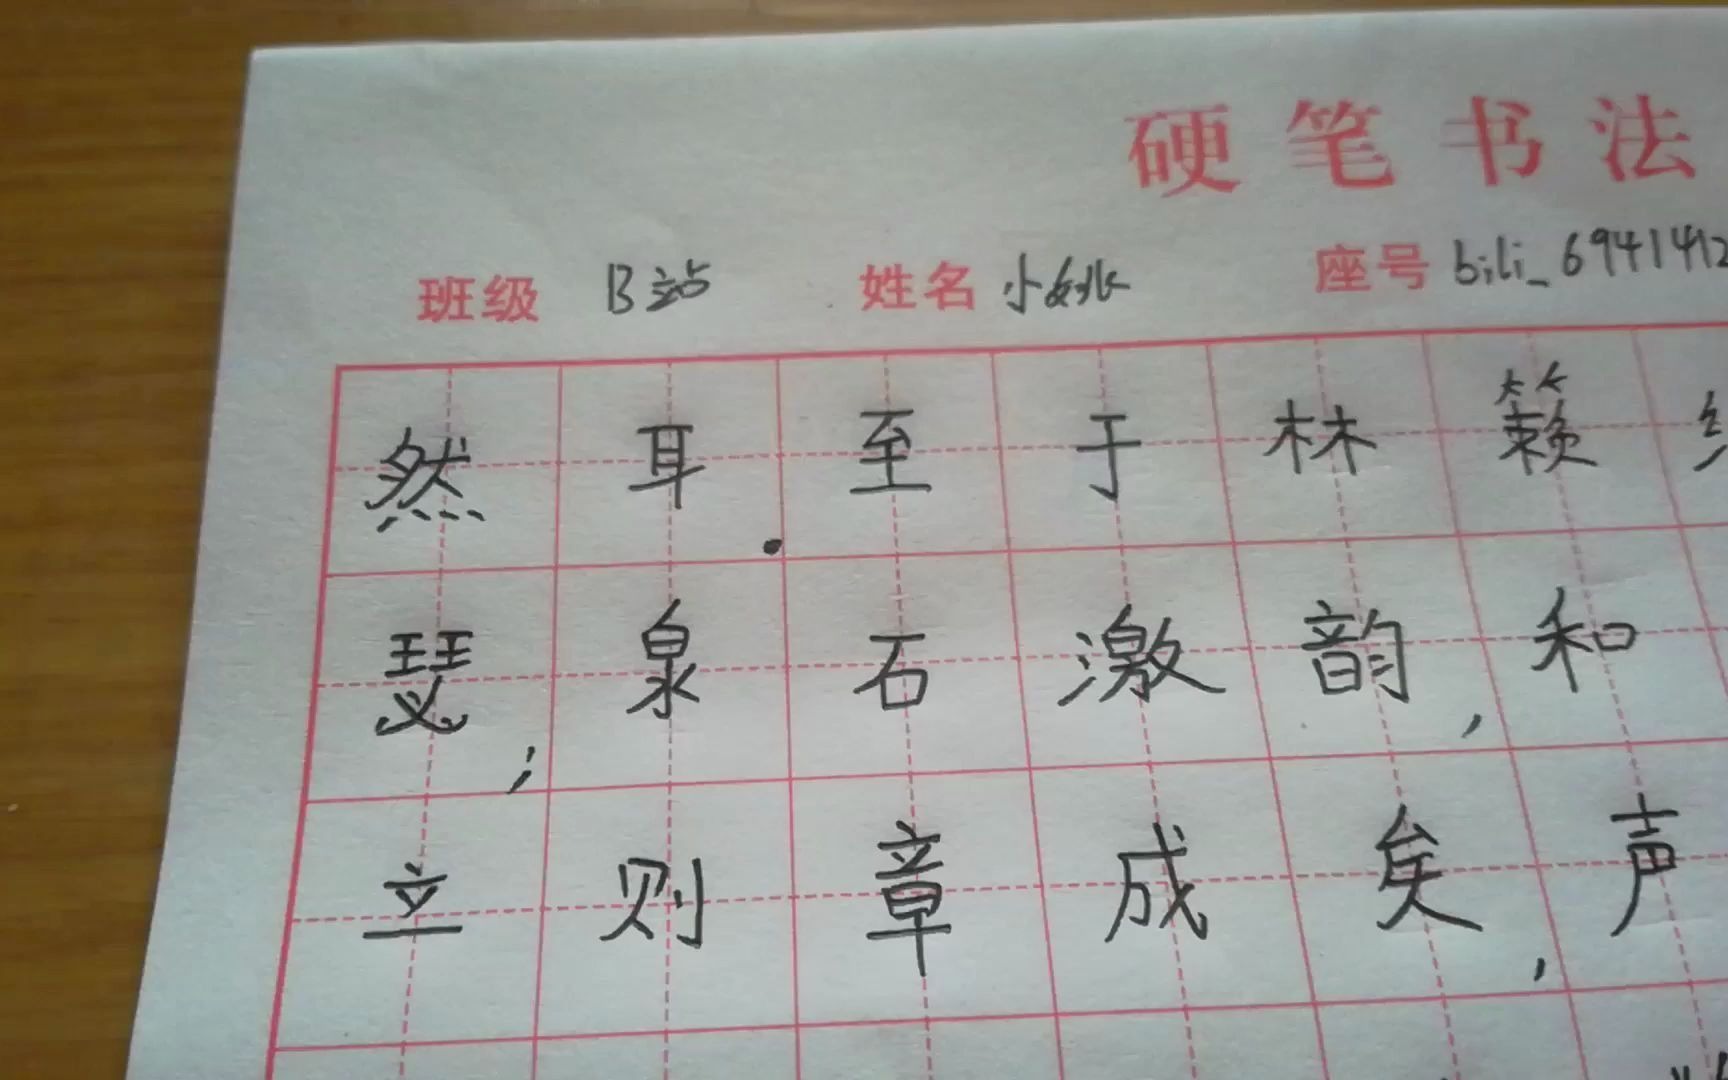 硬笔书法
班级 B站 姓名 小姚 座号 bili_6941412
然耳.至于林籁
瑟;泉石激韵,和
立则章成矣,声